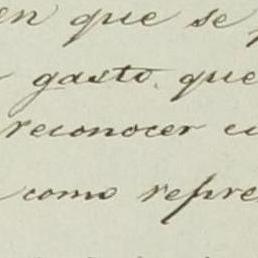 en que se
gasto que
reconocer
como repre